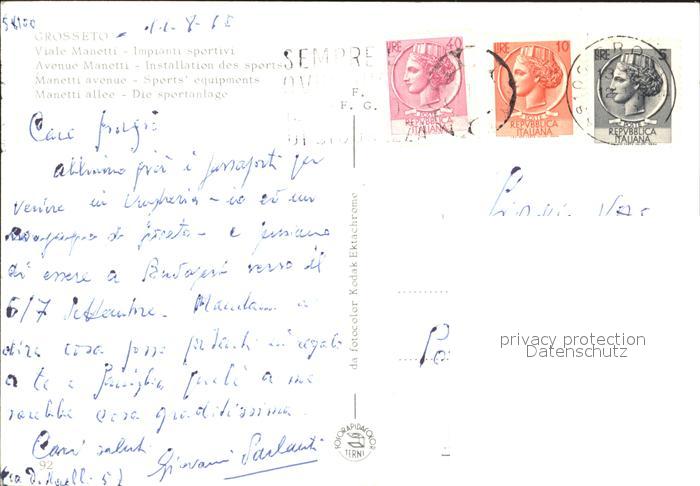 GROSSETO
Viale Manetti - Impianti sportivi
Avenue Manetti - Installation des sports
Manetti avenue - Sports' equipments
Manetti allee - Die sportanlage
SEMPRE
F.
F. G.
LIRE 40
POSTE
REPVBBLICA
ITALIANA
LIRE 10
POSTE
REPVBBLICA
ITALIANA
LIRE 5
POSTE
REPVBBLICA
ITALIANA
Cara
abbiamo già i passaporti per
venire in Ungheria - io ed un
compagno di - e pensiamo
di essere a Budapest verso il
6/7 Settembre. Mandami a
dire cosa posso portarti in regalo
a te e famiglia perchè a me
sarebbe cosa graditissima.
Cari saluti
Giovanni
Via
92
da fotocolor Kodak Ektachrome
FOTORAPIDACOLOR
TERNI
privacy protection
Datenschutz